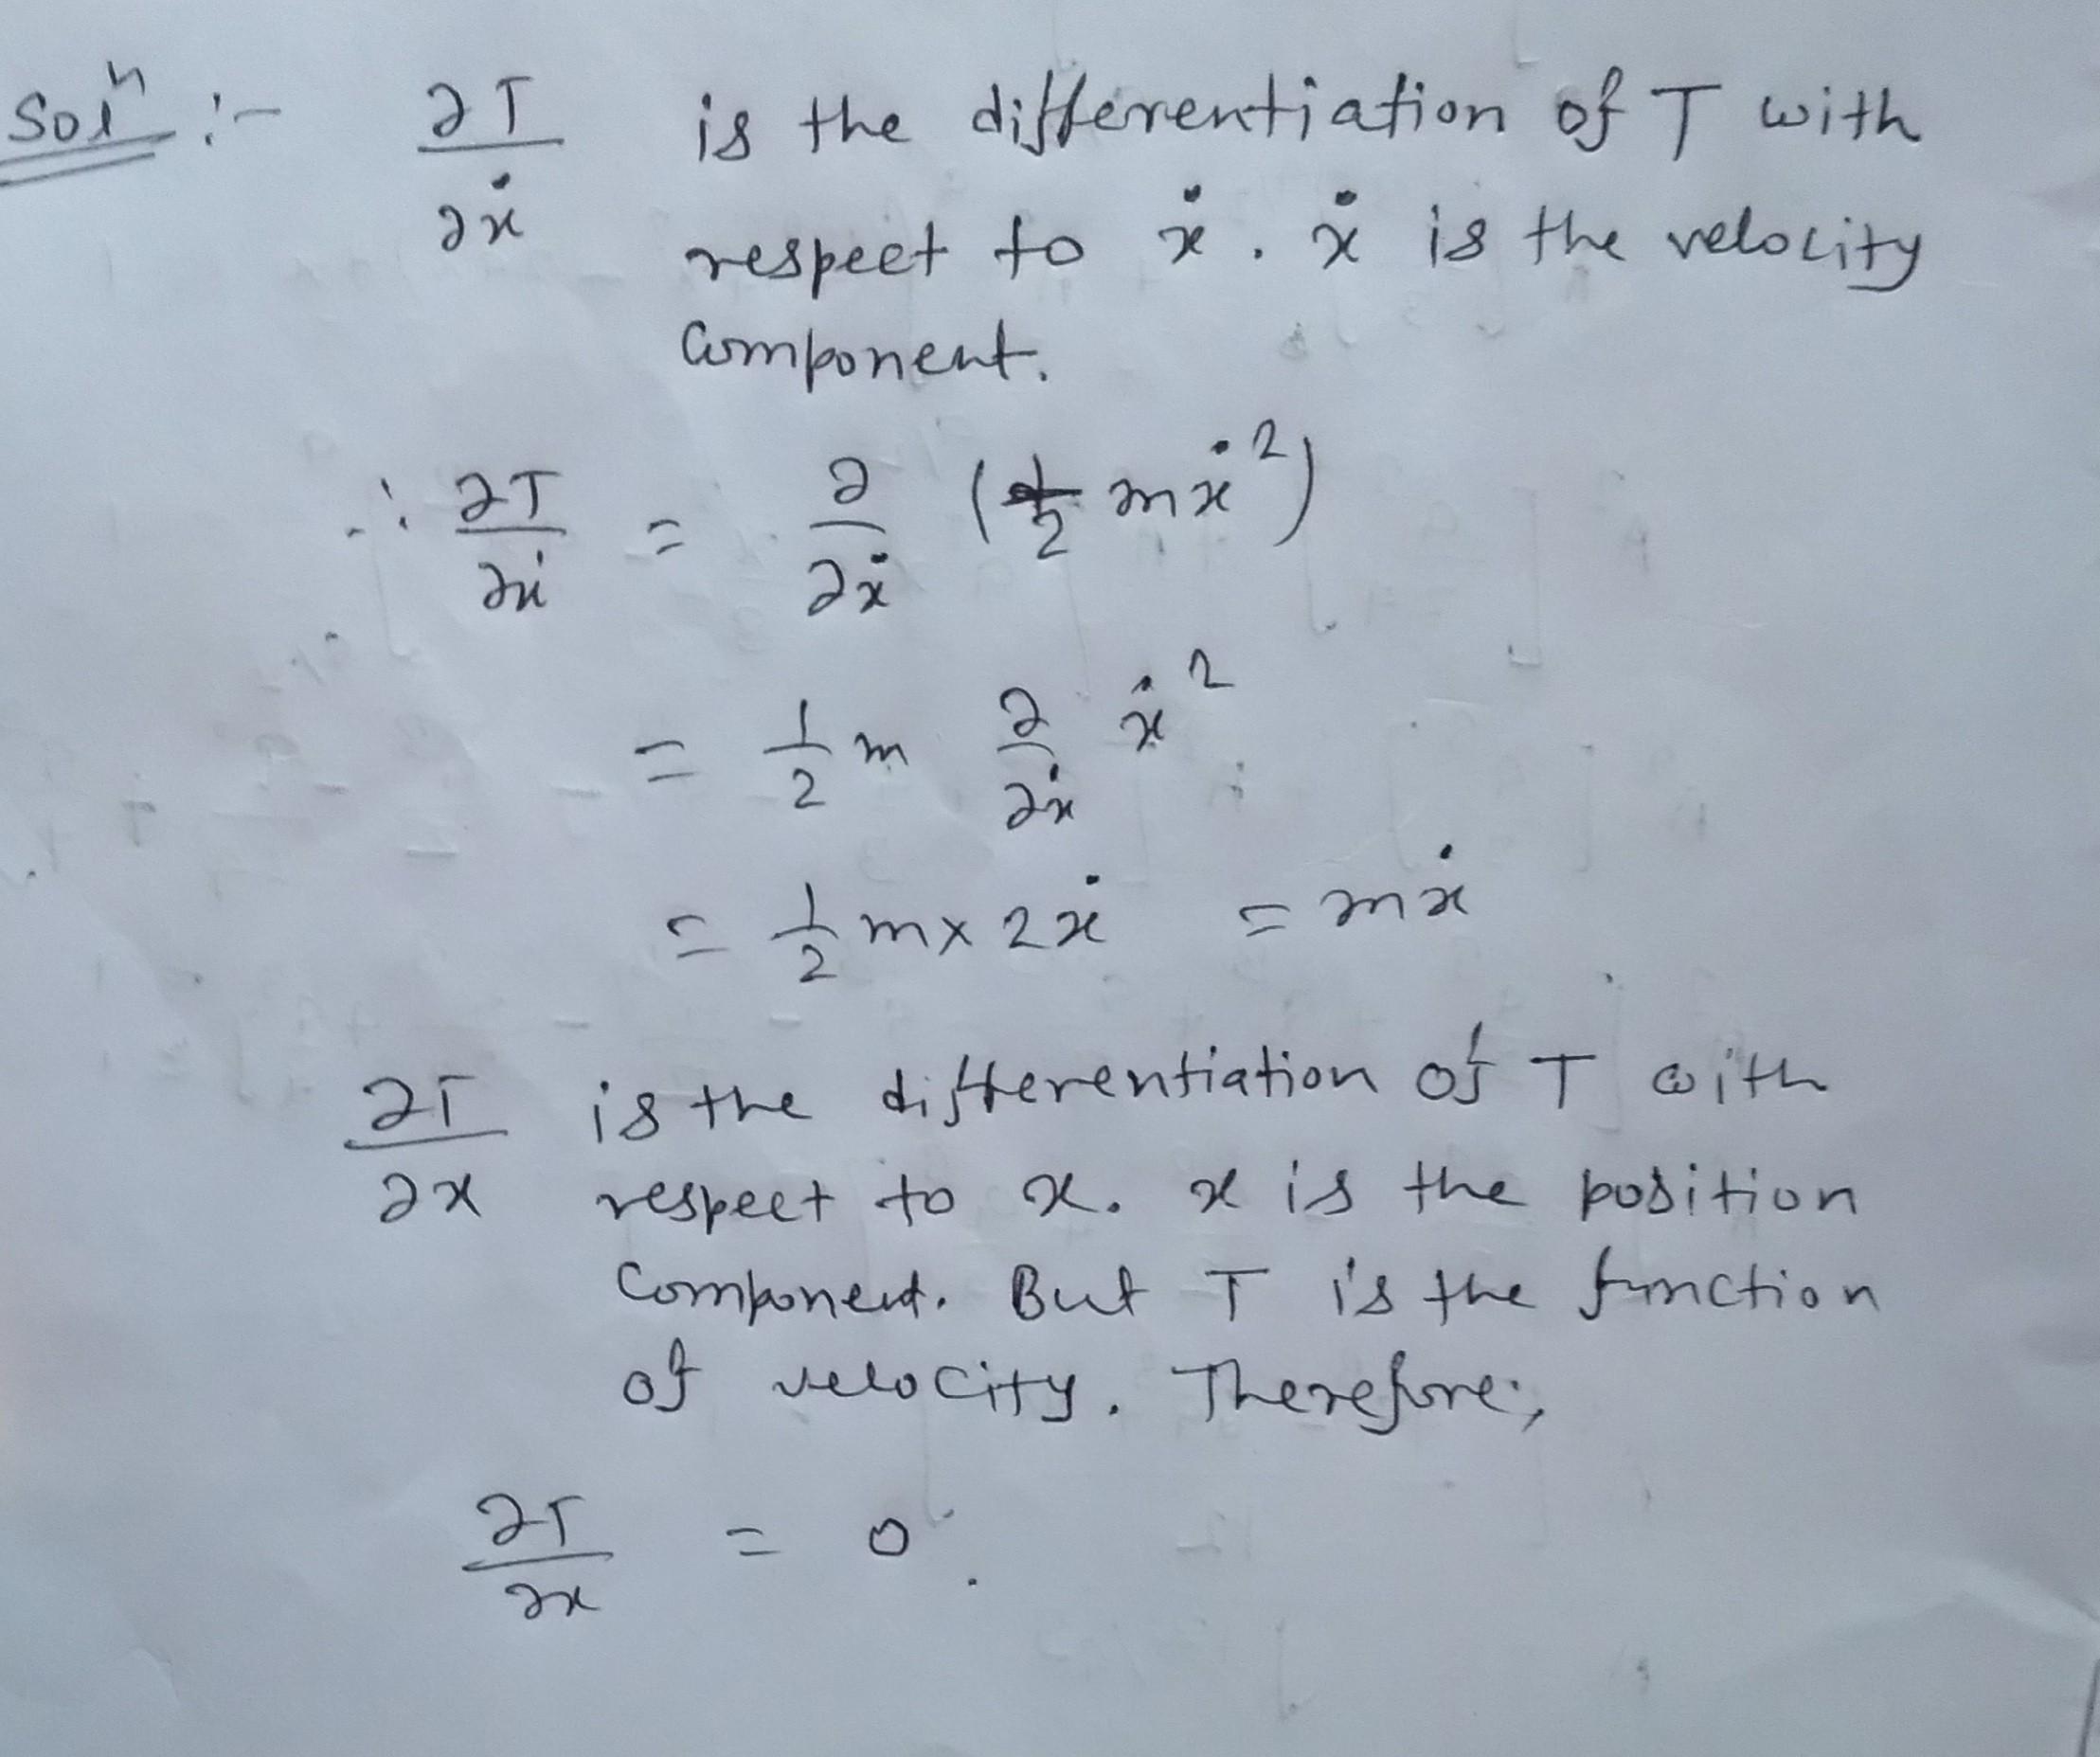 Solⁿ :- ∂T/∂ẋ is the differentiation of T with
respect to ẋ. ẋ is the velocity
Component.
∴ ∂T/∂ẋ = ∂/∂ẋ (1/2 mẋ²)
= 1/2 m ∂/∂ẋ ẋ²
= 1/2 m× 2ẋ = mẋ
∂T/∂x is the differentiation of T with
respect to x. x is the position
Component. But T is the function
of velocity. Therefore,
∂T/∂x = 0.